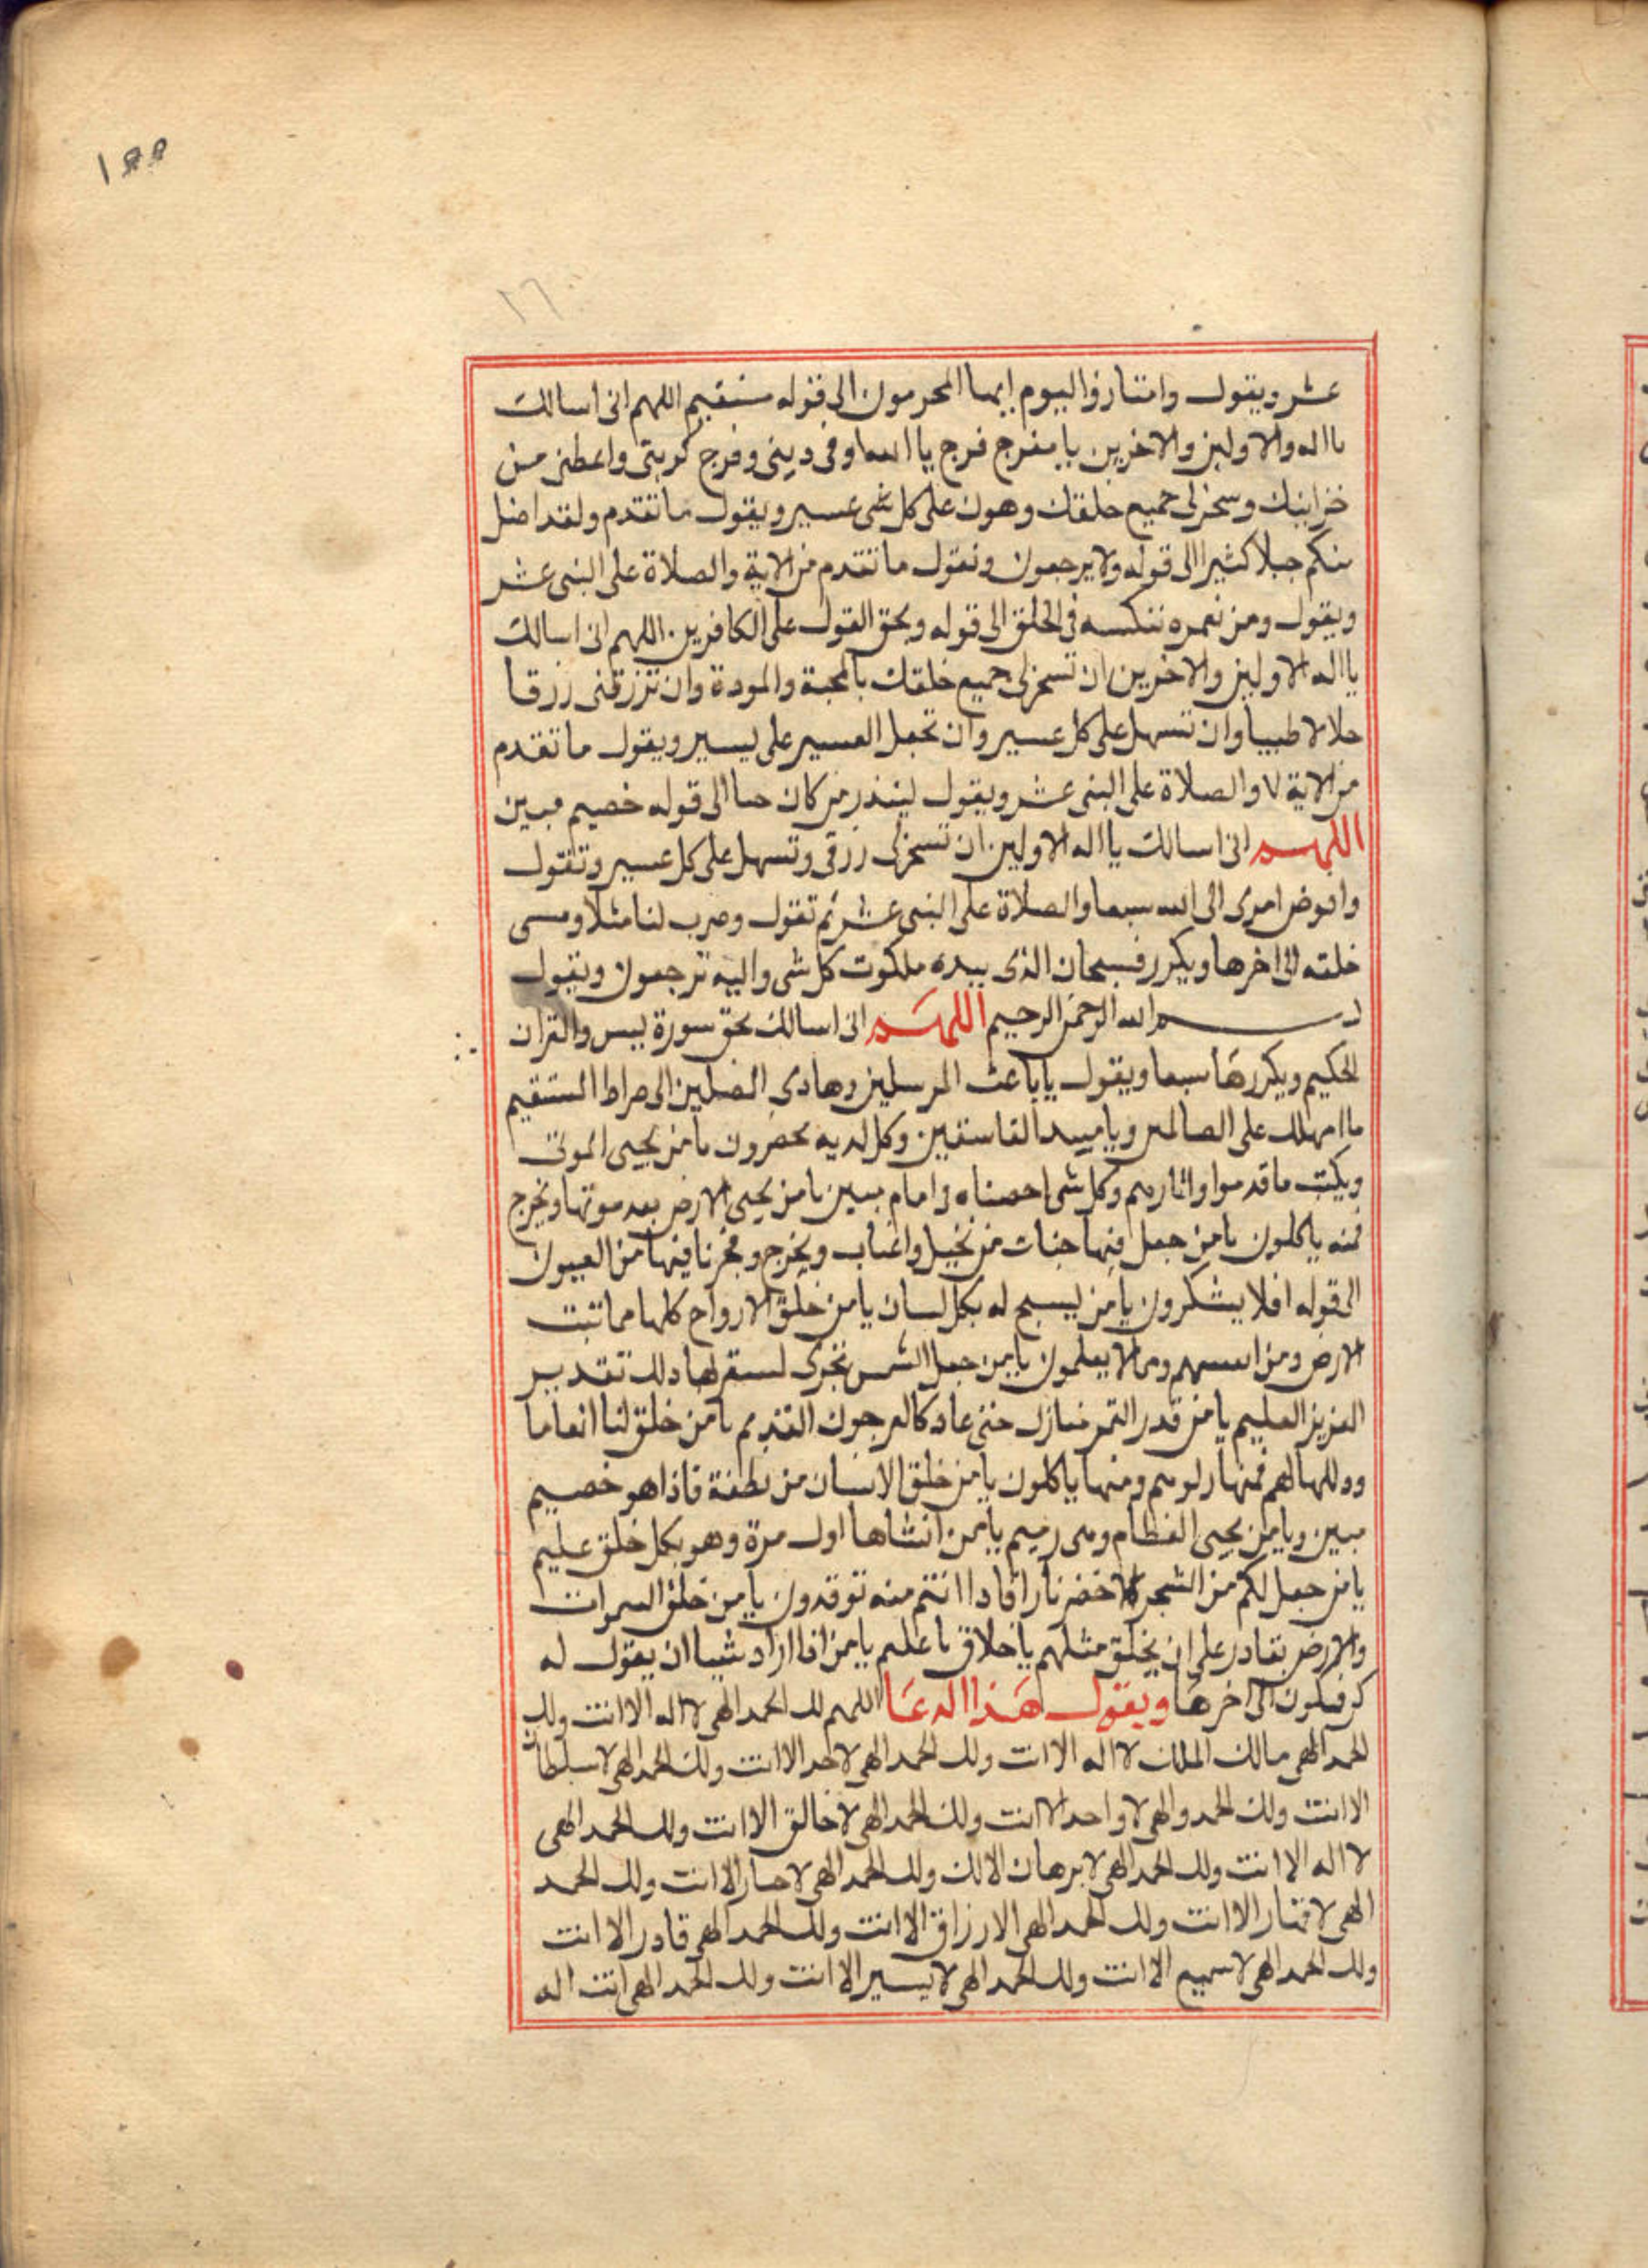 ١٥٥
٢٦
عشر ويقول وامتازوا اليوم ايها المجرمون الى قوله مستقيم اللهم انى اسالك
يااله والاولين والاخرين يا مفرج فرج ياالله اوفى دينى وفرج كربتى واعطنى من
خزاينك وسخر لى جميع خلقك وهون على كل شى عسير ويقول ما تقدم ولقد اضل
منكم جبلا كثيرا الى قوله ولا يرجعون وتقول ما تقدم من الاية والصلاة على النبى عشر
ويقول ومن نعمره ننكسه فى الخلق الى قوله ويحق القول على الكافرين اللهم انى اسالك
يااله الاولين والاخرين ان تسخر لى جميع خلقك بالمحبة والمودة وان ترزقنى رزقا
حلالا طيبا وان تسهل على كل عسير وان تجعل العسير على يسير ويقول ما تقدم
من الاية ٧ والصلاة على النبى عشر ويقول لينذر من كان حيا الى قوله خصيم مبين
اللهم انى اسالك يااله الاولين ان تسخر لى رزقى وتسهل على كل عسير وتقول
وافوض امرى الى الله سبعا والصلاة على النبى عشر ثم تقول وضرب لنا مثلا ونسى
خلقه الى اخرها ويكرر فسبحان الذى بيده ملكوت كل شى واليه ترجعون ويقول
بسم الله الرحمن الرحيم اللهم انى اسالك بحق سورة يس والقران
الحكيم ويكررها سبعا ويقول يا باعث المرسلين وهادى المضلين الى صراط المستقيم
ما امهلك على الظالمين ويا مبيد الفاسقين وكل لديه محضرون يا من يحيى الموتى
ويكتب ما قدموا واثارهم وكل شى احصيناه فى امام مبين يا من يحيى الارض بعد موتها ويخرج
فمنه ياكلون يا من جعل فيها جنات من نخيل واعناب ويخرج وفجرنا فيها من العيون
الى قوله افلا يشكرون يا من يسبح له بكل لسان يا من خلق الارواح كلها مما تنبت
الارض ومن انفسهم ومما لا يعلمون يا من جعل الشمس تجرى لمستقر لها ذلك تقدير
العزيز العليم يا من قدر القمر منازل حتى عاد كالعرجون القديم يا من خلق لنا انعاما
وذللها لهم فمنها ركوبهم ومنها ياكلون يا من خلق الانسان من نطفة فاذا هو خصيم
مبين ويا من يحيى العظام وهى رميم يا من انشاها اول مرة وهو بكل خلق عليم
يا من جعل لكم من الشجر الاخضر نارا فاذا انتم منه توقدون يا من خلق السموات
والارض بقادر على ان يخلق مثلهم يا خلاق يا عليم يا من اذا اراد شيا ان يقول له
كن فيكون الى اخرها ويقول هذا الدعا اللهم لك الحمد الهى لا اله الا انت ولك
الحمد الهى مالك الملك لا اله الا انت ولك الحمد الهى لا احد الا انت ولك الحمد الهى لا سلطان
الا انت ولك الحمد والهى لا واحد الا انت ولك الحمد الهى لا خالق الا انت ولك الحمد الهى
لا اله الا انت ولك الحمد الهى لا برهان الا لك ولك الحمد الهى لا جبار الا انت ولك الحمد
الهى لا قهار الا انت ولك الحمد الهى الا رزاق الا انت ولك الحمد الهى قادر الا انت
ولك الحمد الهى لا سميع الا انت ولك الحمد الهى لا يسير الا انت ولك الحمد الهى انت اله